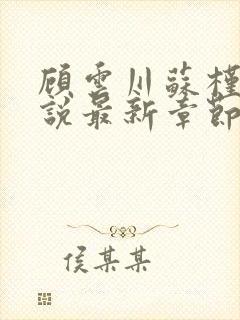 顾雲川蘇槿
說最新章節
侯某某